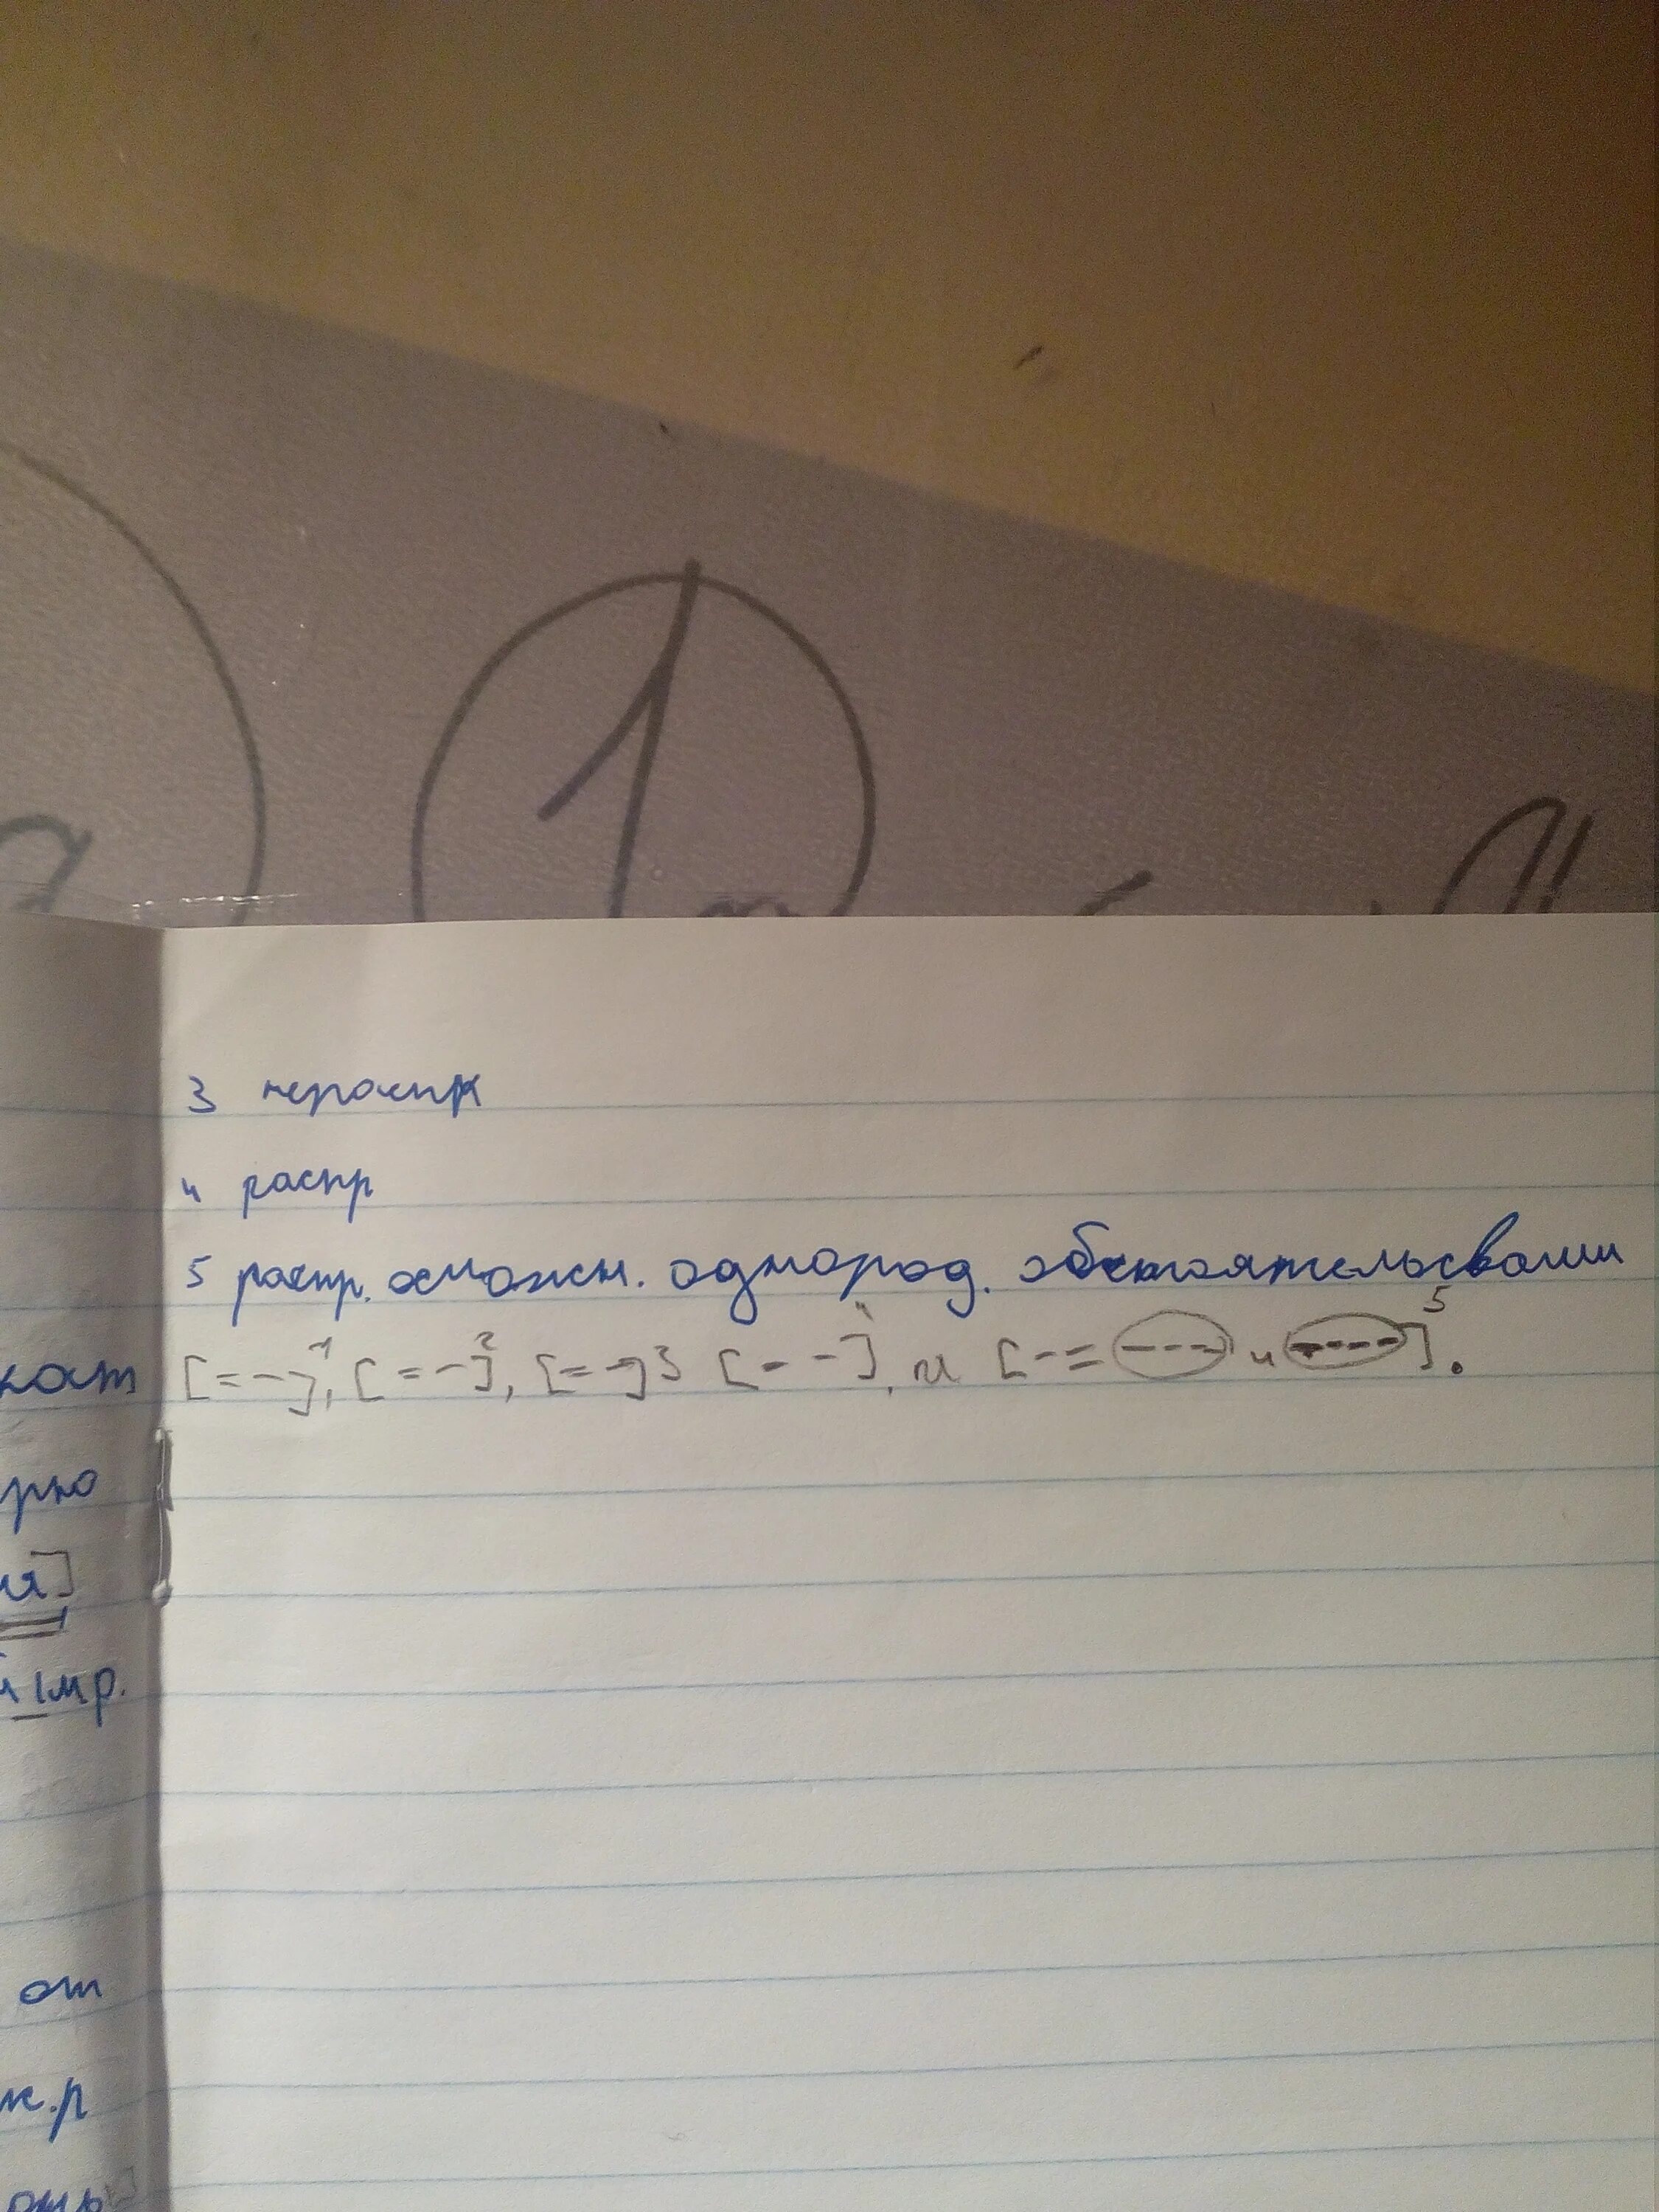 1
3 нераспр
4 распр
5 распр. осложн. однород. обстоятельсвами
[= -]1, [= -]2, [= -]3 [- -]4, и [- = (---) и (----)]5.
кат
рно
ия]
1мр.
от
ж.р